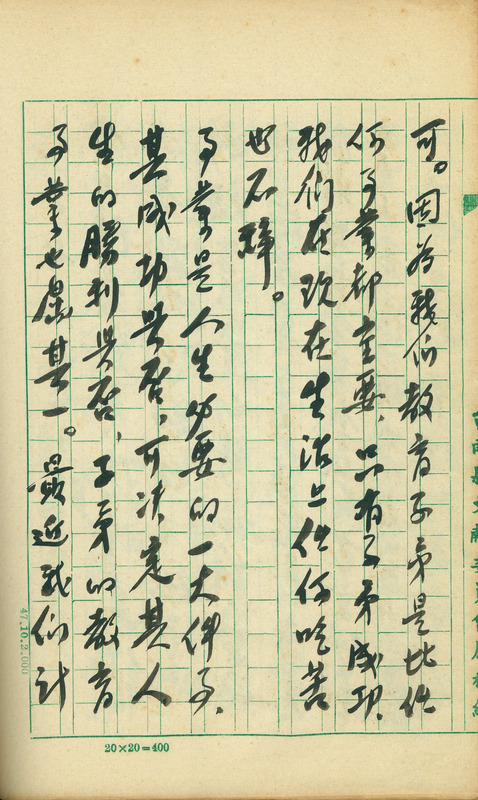 可。因為我们教育子弟是比任
何事業都重要,只有子弟成功,
我們在現在生活上任何吃苦
也不辭。
事業是人生必要的一大件事,
其成功與否,可决定其人
生的勝利與否,子弟的教育
事業也屬其一。最近我们計
20×20=400
47.10.2.000